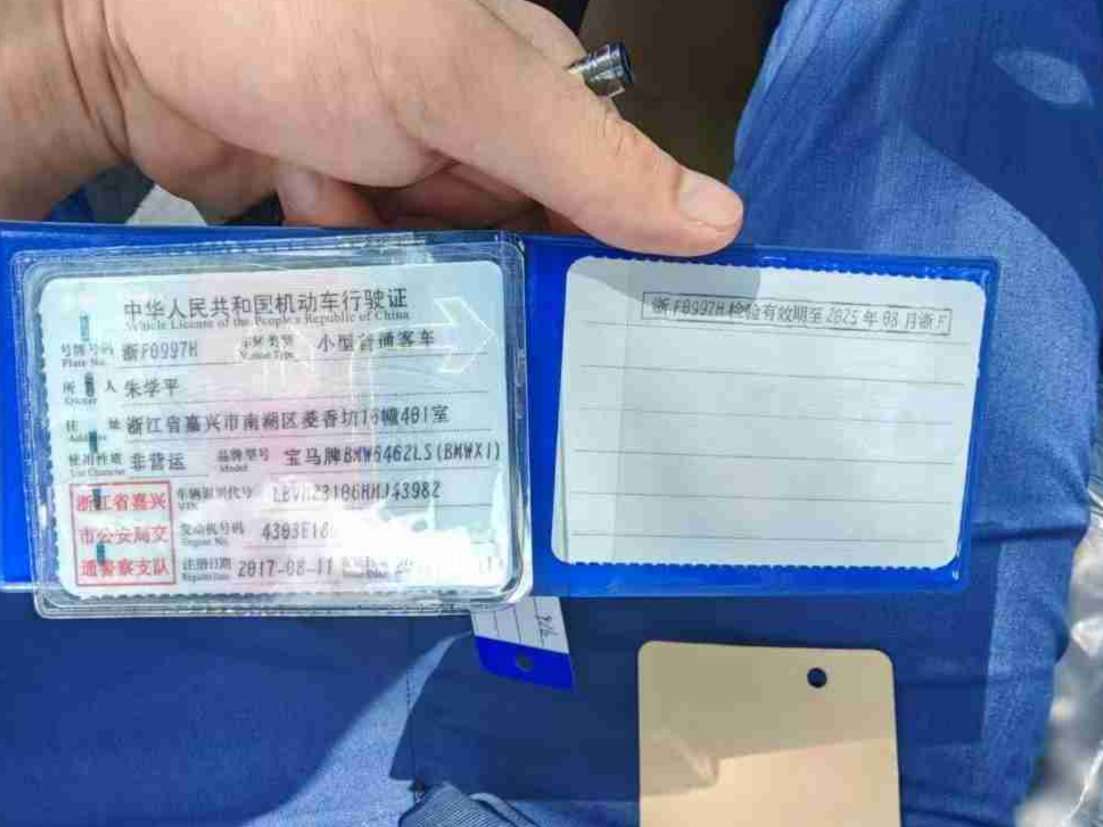 中华人民共和国机动车行驶证
Vehicle License of the People's Republic of China
号牌号码 浙F0997H 车辆类型 小型普通客车
Plate No. Vehicle Type
所 人 朱学平
Owner
住 址 浙江省嘉兴市南湖区菱香坊16幢401室
Address
使用性质 非营运 品牌型号 宝马牌BMW6462LS(BMWX1)
Use Character Model
浙江省嘉兴
市公安局交
通警察支队
车辆识别代号
VIN
发动机号码 4303E18
Engine No.
注册日期 2017-08-11
Register Date
浙F0997H 检验有效期至 2025年08月浙F